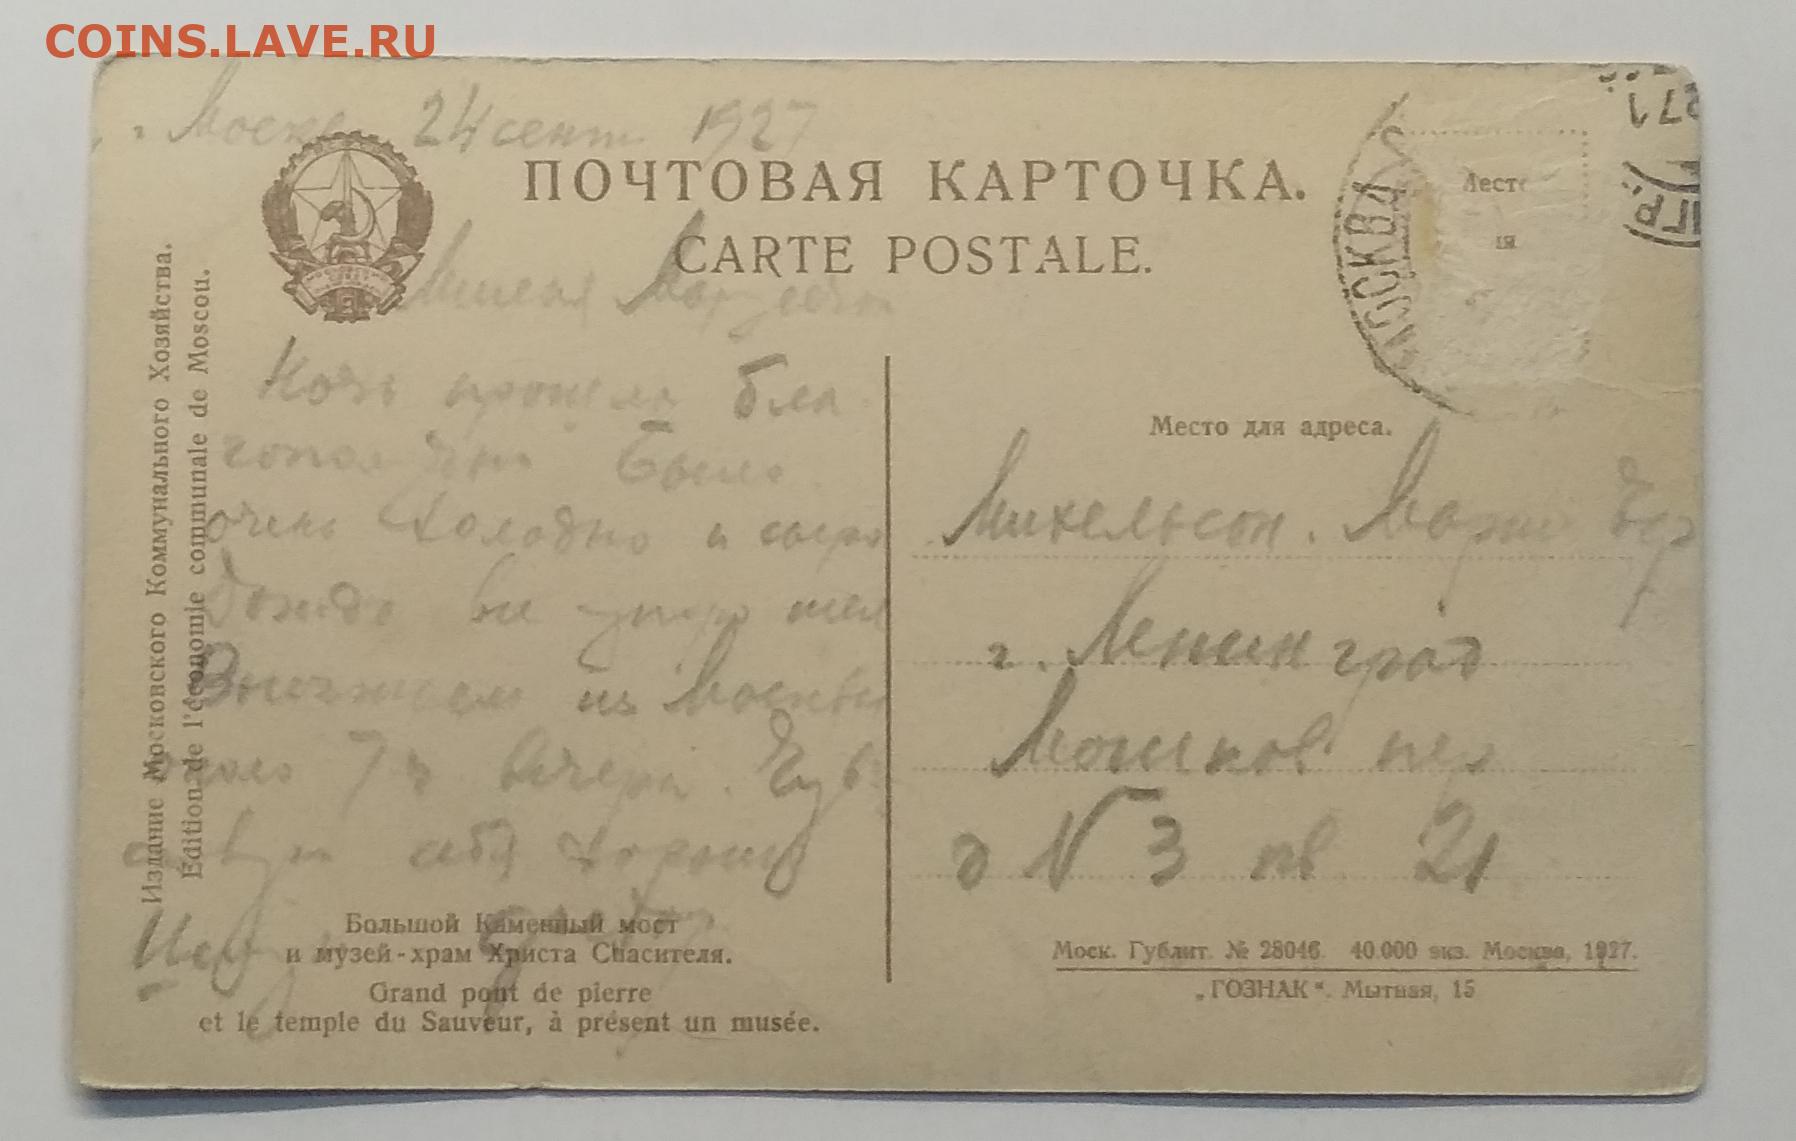 COINS.LAVE.RU
24 сент 1927
ПОЧТОВАЯ КАРТОЧКА.
CARTE POSTALE.
МОСКВА
Издание Московского Коммунального Хозяйства.
Edition de l'économie communale de Moscou.
Милая
Ночь прошла бла
гополучно Было
очень холодно и сыро
Дождь все утро шел
Выезжаем из Москвы
около 7 ч вечера. Чув
ствую себя хорошо
Целую
Место для адреса.
Михельсон. Марии
г. Ленинград
Мошков пер
д N 3 кв 21
Большой Каменный мост
и музей-храм Христа Спасителя.
Grand pont de pierre
et le temple du Sauveur, à présent un musée.
Моск. Гублит. № 28046. 40.000 экз. Москва, 1927.
„ГОЗНАК“. Мытная, 15